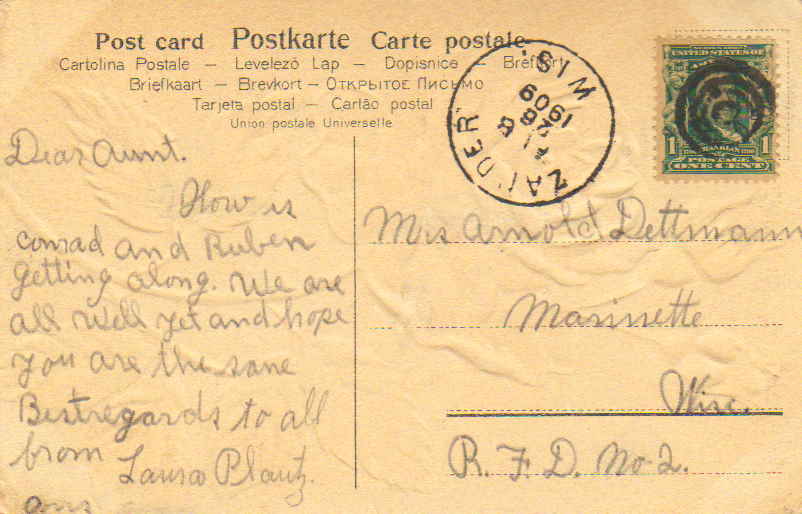 Post card Postkarte Carte postale
Cartolina Postale – Levelező Lap – Dopisnice – Brefkort
Briefkaart – Brevkort – Открытое Письмо
Tarjeta postal – Cartão postal –
Union postale Universelle
Dear Aunt.
How is
conrad and Ruben
getting along. We are
all well yet and hope
you are the sane
Best regards to all
from
Laura Plautz.
ans
ZANDER
WIS.
26
1909
UNITED STATES OF
FRANKLIN
1 POSTAGE 1
ONE CENT
Mrs Arnold Dettmann
Marinette
Wisc.
R. F. D. No 2.